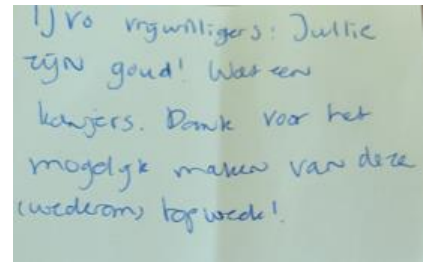 IJVO vrijwilligers: Jullie
zijn goud! Wat een
kanjers. Dank voor het
mogelijk maken van deze
(wederom) topweek!